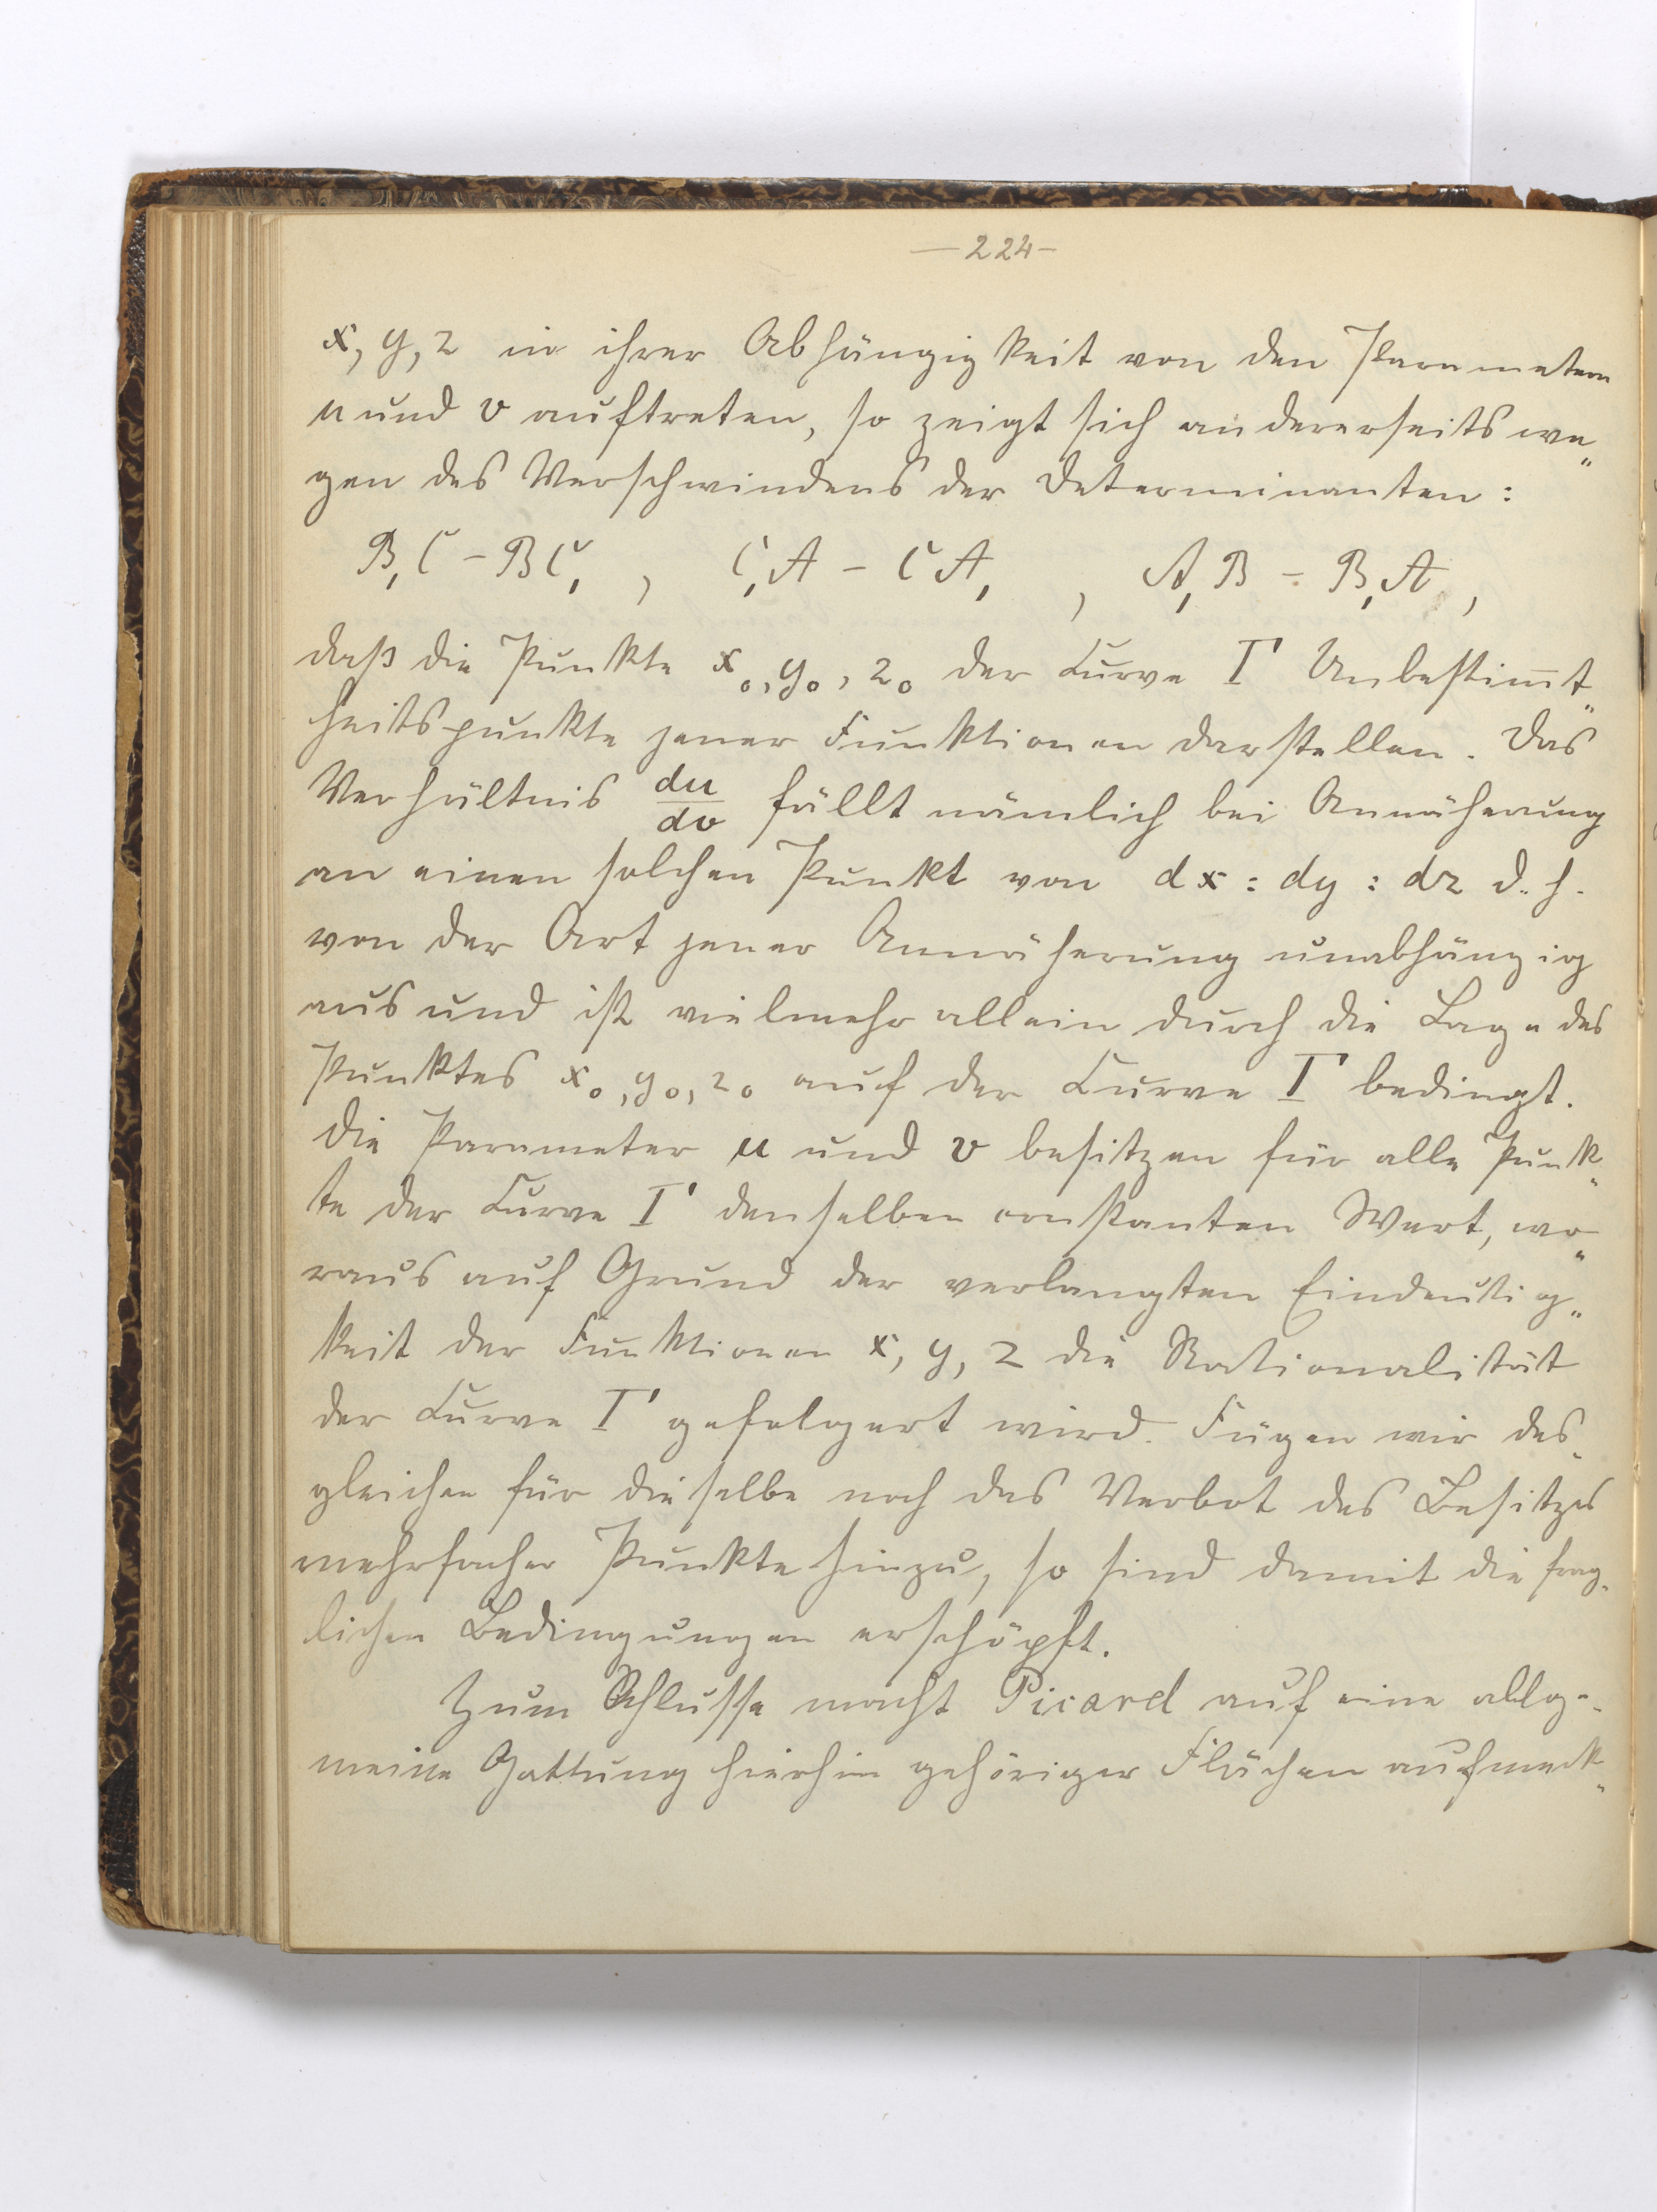 — 224 —
x, y, z in ihrer Abhängigkeit von den Parametern
u und v auftreten, so zeigt sich andererseits we„
gen des Verschwindens der Determinanten:
B₁C – BC₁ , C₁A – CA₁ , A₁B – B₁A ,
daß die Punkte x₀, y₀, z₀ der Curve Γ Unbestim̅t„
heitspunkte jener Funktionen darstellen. Das
Verhältnis du/dv fällt nämlich bei Annäherung
an einen solchen Punkt von dx : dy : dz d. h.
von der Art jener Annäherung unabhängig
aus und ist vielmehr allein durch die Lage des
Punktes x₀, y₀, z₀ auf der Curve Γ bedingt.
Die Parameter u und v besitzen für alle Punk„
te der Curve Γ denselben constanten Wert, wo„
raus auf Grund der verlangten Eindeutig„
keit der Funktionen x, y, z die Rationalität
der Curve Γ gefolgert wird. Fügen wir des„
gleichen für dieselbe noch das Verbot des Besitzes
mehrfacher Punkte hinzu, so sind damit die frag„
lichen Bedingungen erschöpft.
Zum Schlusse macht Picard auf eine allge„
meine Gattung hierhin gehöriger Flächen aufmerk„